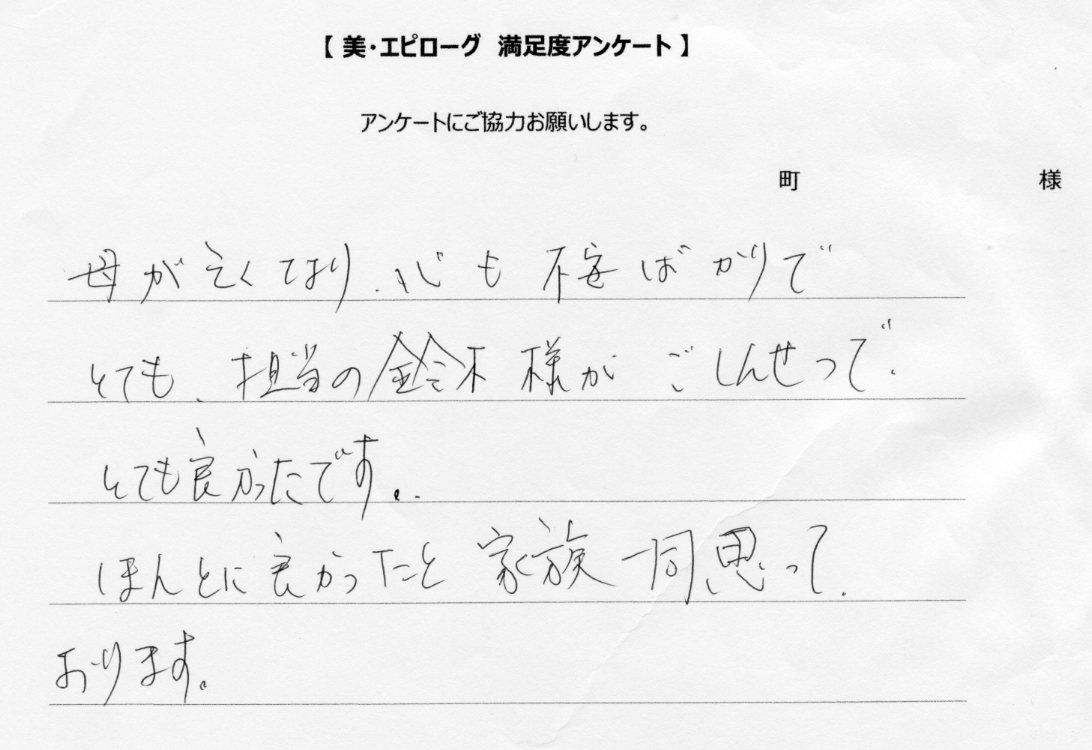 【 美・エピローグ 満足度アンケート 】
アンケートにご協力お願いします。
町 様
母が亡くなり、心も不安ばかりで
とても、担当の鈴木様が ごしんせつで、
とても良かったです。
ほんとに良かったと家族一同思って
おります。